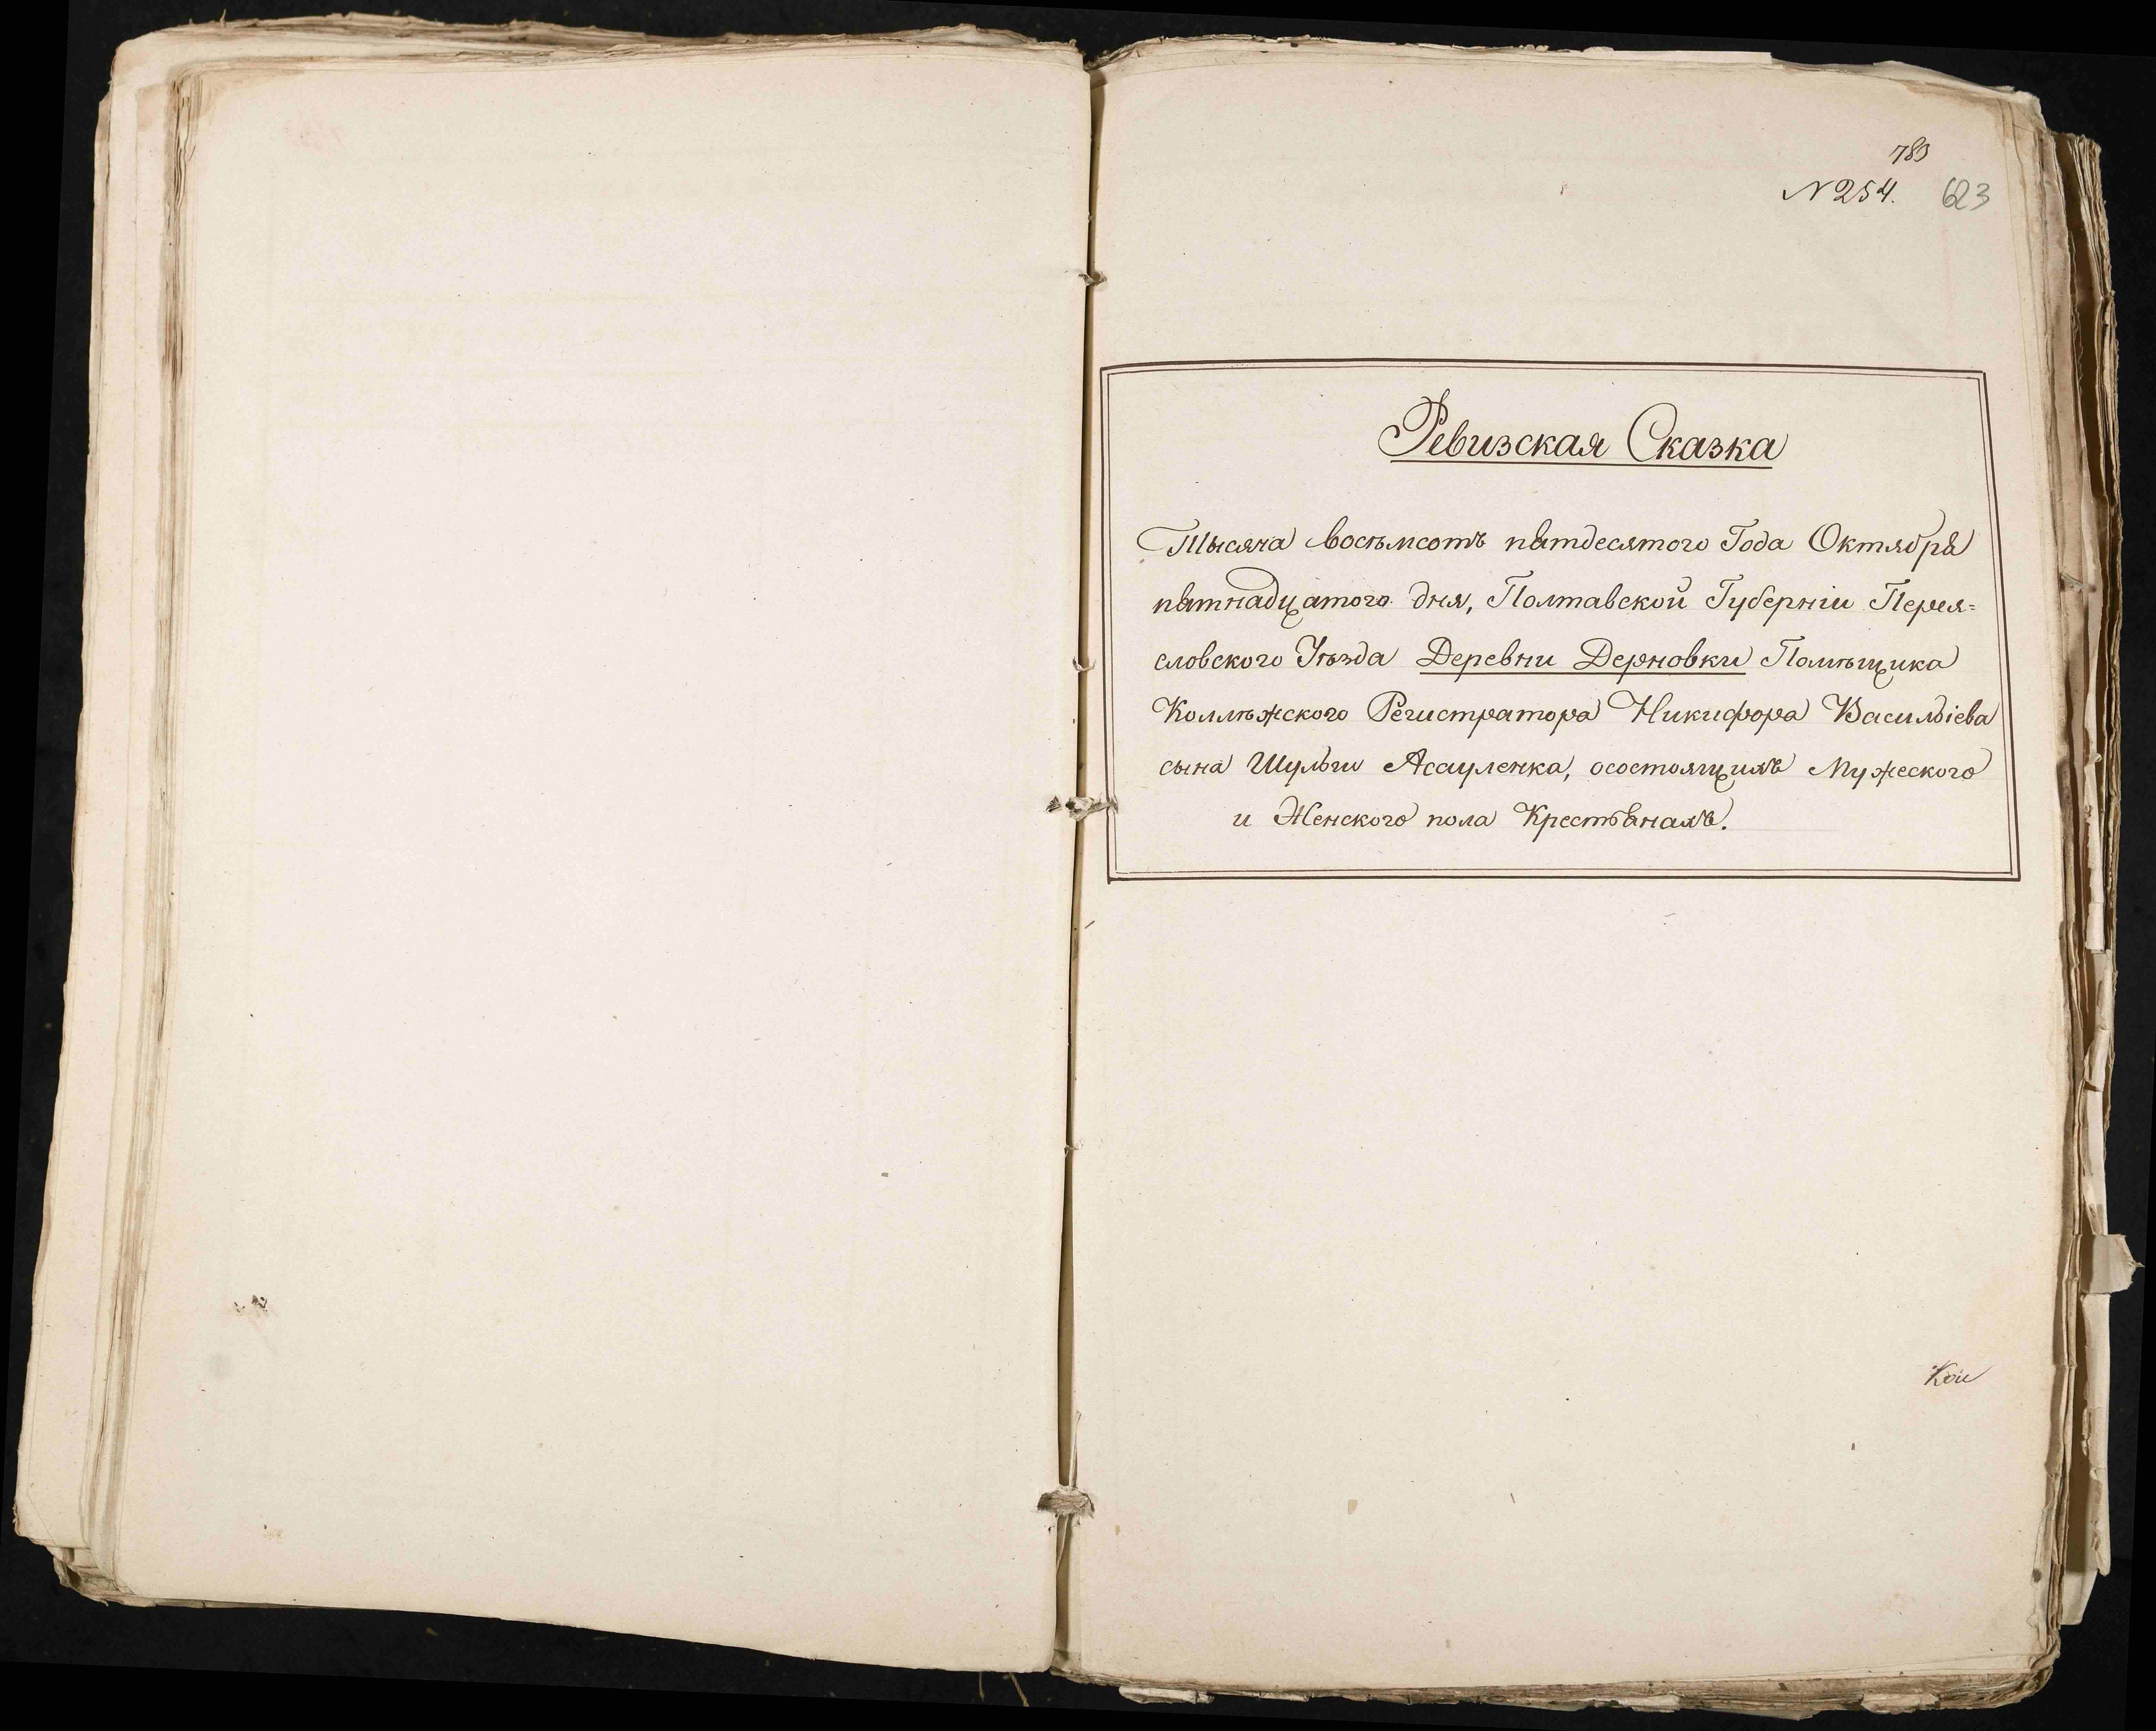 783
N 254. 623
Ревизская Сказка
Тысяча восьмсотъ пятдесятого Года Октября
пятнадцатого дня, Полтавской Губерніи Перея=
словского Уѣзда Деревни Дерновки Помѣщика
Коллѣжского Регистратора Никифора Васильіева
сына Шульги Асауленка, осостоящихъ Мужеского
и Женского пола Крестьянахъ.